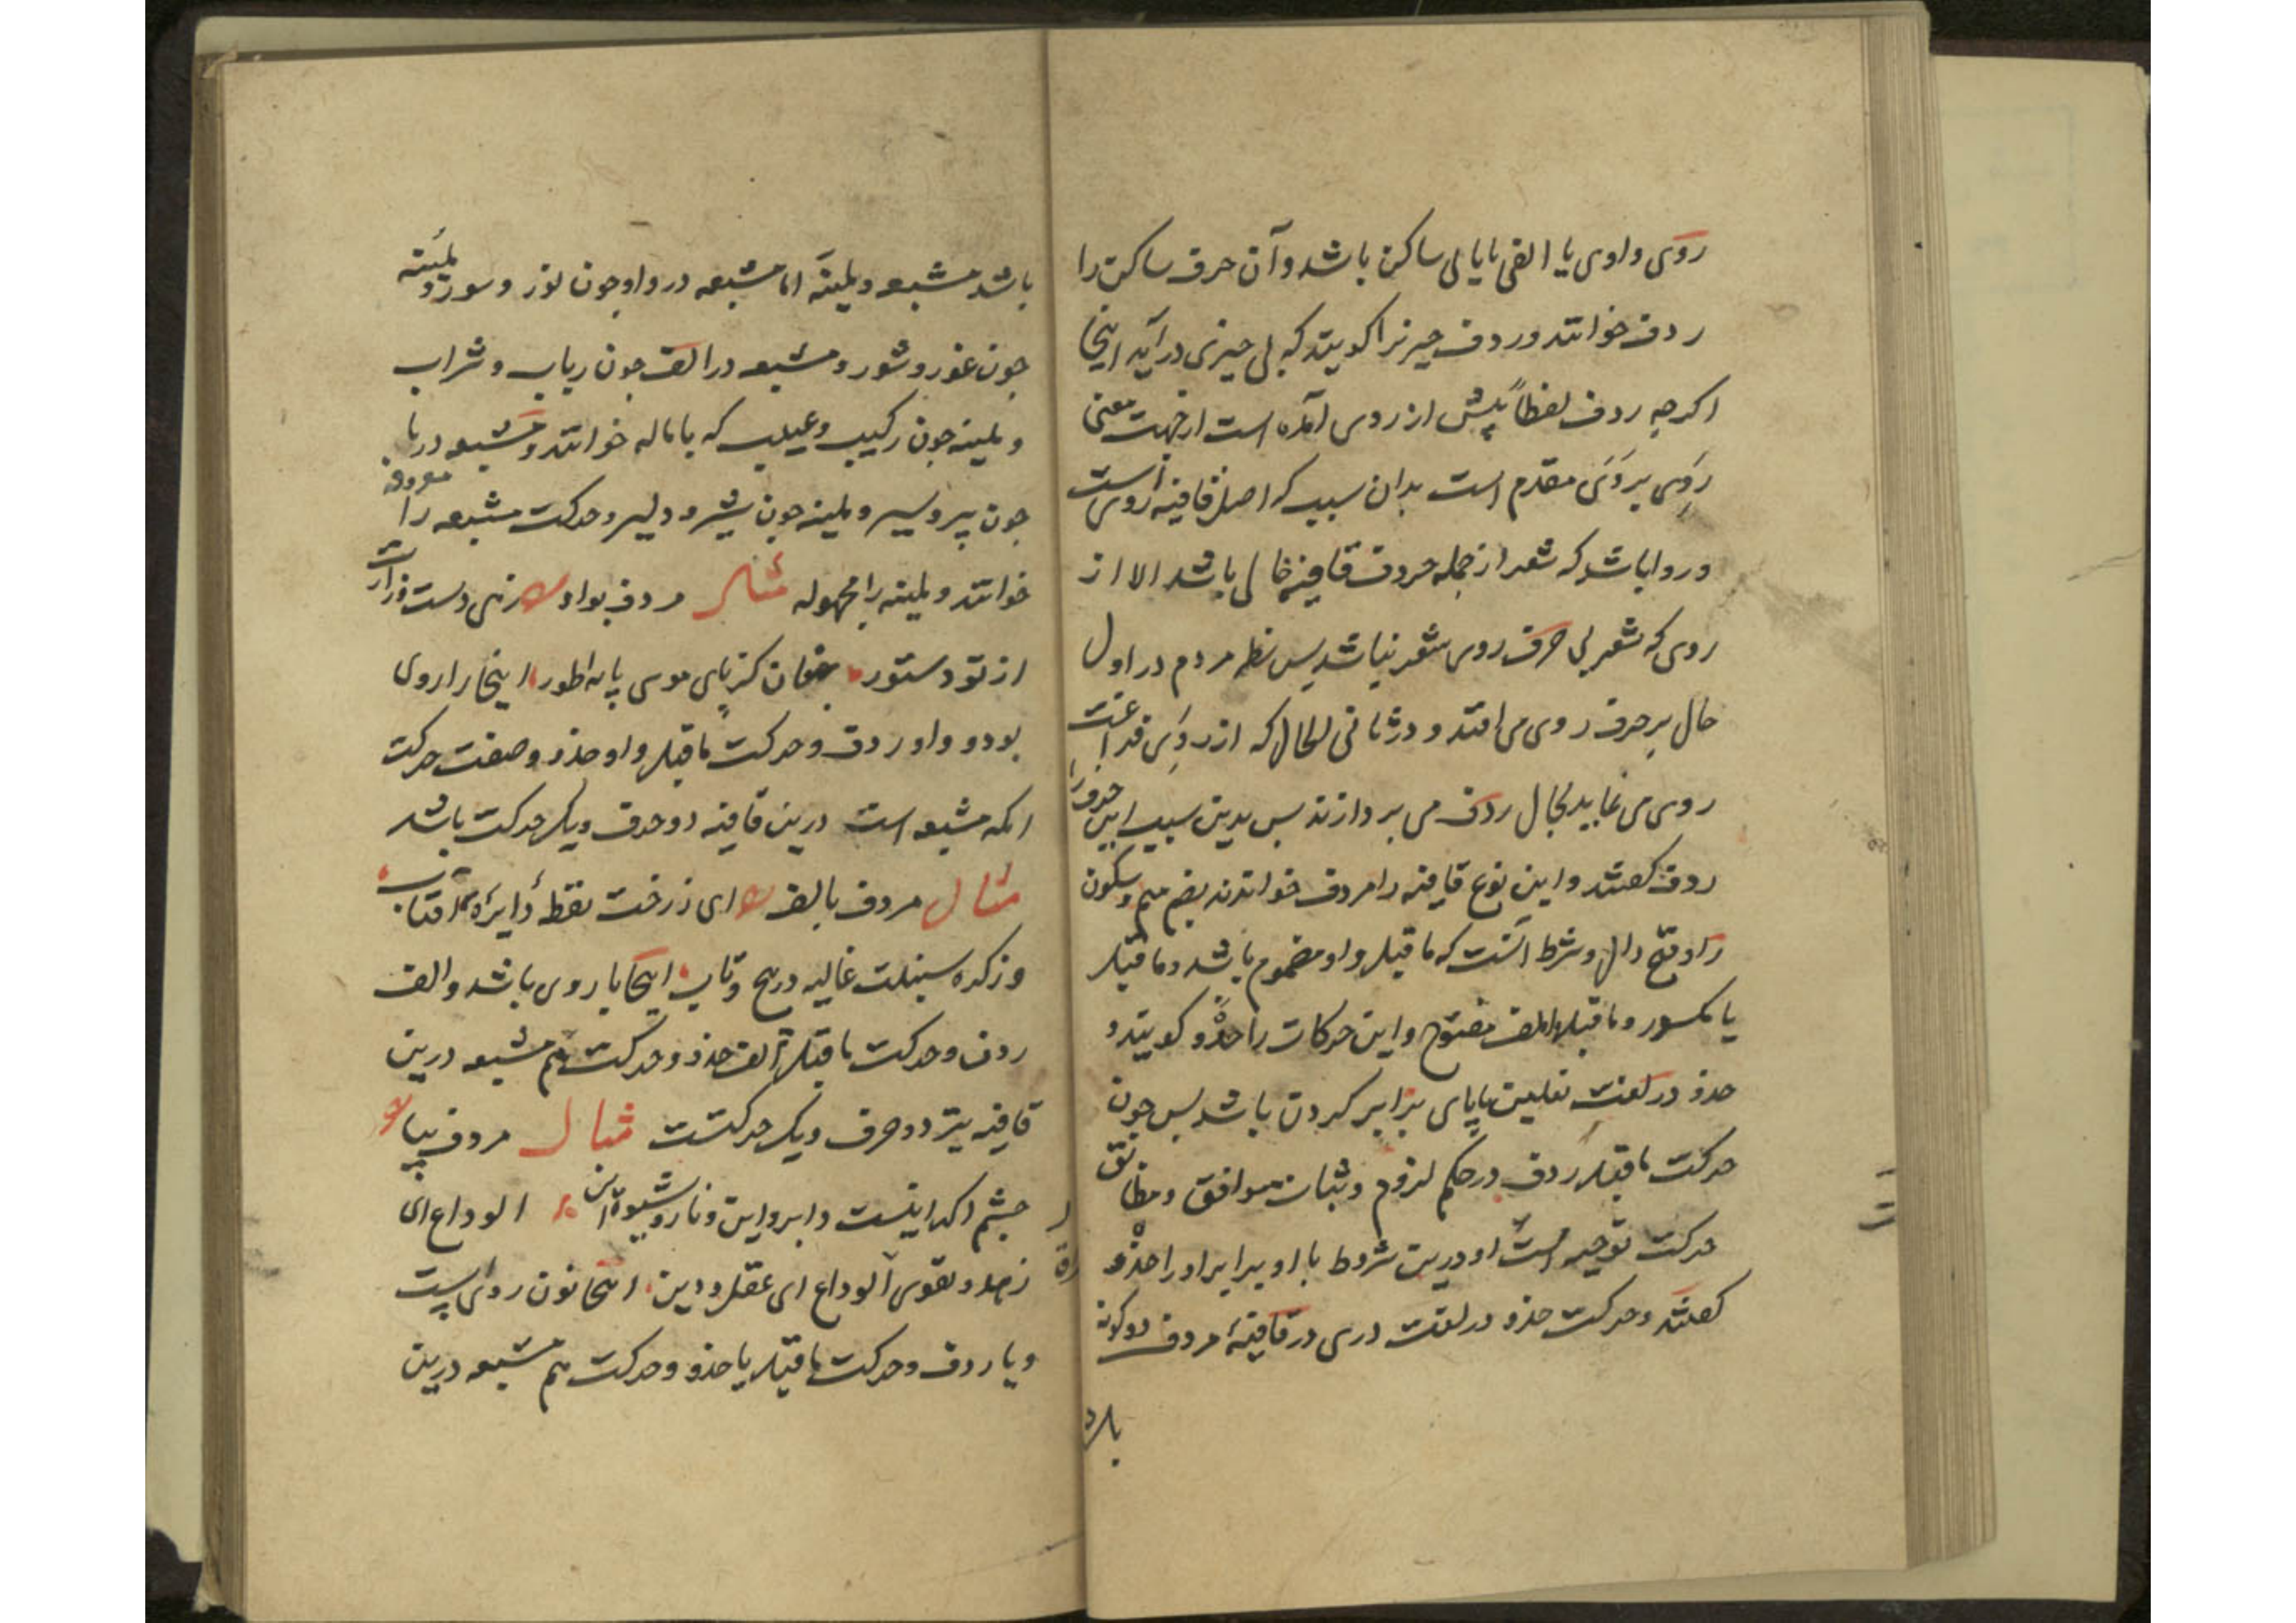 روی واوی یا الفی یا یایی ساکن باشد وآن حرف ساکن را
ردف خوانند وردف چیزیرا کویند که پی چیزی درآید اینجا
اکرچه ردف لفظاً پیش از روی آمده است ازجهت معنی
روی بر روی مقدم است بدان سبب که اصل قافیه روی است
وروا باشد که شعر از جمله حروف قافیه خالی باشد الا از
روی که شعر بی حرف روی شعر نباشد پس نظر مردم در اول
حال بر حرف روی می افتد و در ثانی الحال که از روی فراغت
روی می نماید بحال ردف می پردازند پس بدین سبب این حرف را
ردف کفتند واین نوع قافیه را مردف خوانند بضم میم وسکون
را وفتح دال وشرط آنست که ماقبل واو مضموم باشد وماقبل
یا مکسور وماقبل الف مفتوح واین حرکات را حذو کویند و
حذو در لغت نعلین با پای برابر کردن باشد پس چون
حرکت ماقبل ردف در حکم لزوم وثبات موافق ومطابق
حرکت توجیه است او درین شروط با او برابر اورا حذو
کفتند وحرکت حذو در لغت دری در قافیهٔ مردف دوکونه
باشد
باشد مشبعه وملینه اما مشبعه در واو چون نور وسور وملینه
چون غور وشور ومشبعه در الف چون رباب وشراب
وملینه چون رکیب وعیلب که باماله خوانند ومشبعه در یا
چون پیر وسیر وملینه چون شیر ودلیر وحرکت مشبعه را معروفه
خوانند وملینه را مجهوله مثال مردف بواو زهی دست وزارت
از تو دستور چنان کز پای موسی پایه طور اینجا را روی
بود و واو ردف وحرکت ماقبل واو حذو وصفت حرکت
انکه مشبعه است درین قافیه دو حرف ویک حرکت باشد
مثال مردف بالف ای ز رخت نقطهٔ دایرهٔ آفتاب
وز کره سنبلت غالیه در پیچ وتاب اینجا با روی باشد والف
ردف وحرکت ماقبل الف حذو وحرکت هم مشبعه درین
قافیه نیز دو حرف ویک حرکتست مثال مردف بیا
چشم اکر اینست وابرو این وناز وشیوه این الوداع ای
زهد وتقوی الوداع ای عقل ودین اینجا نون روی است
ویا ردف وحرکت ماقبل یا حذو وحرکت هم مشبعه درین